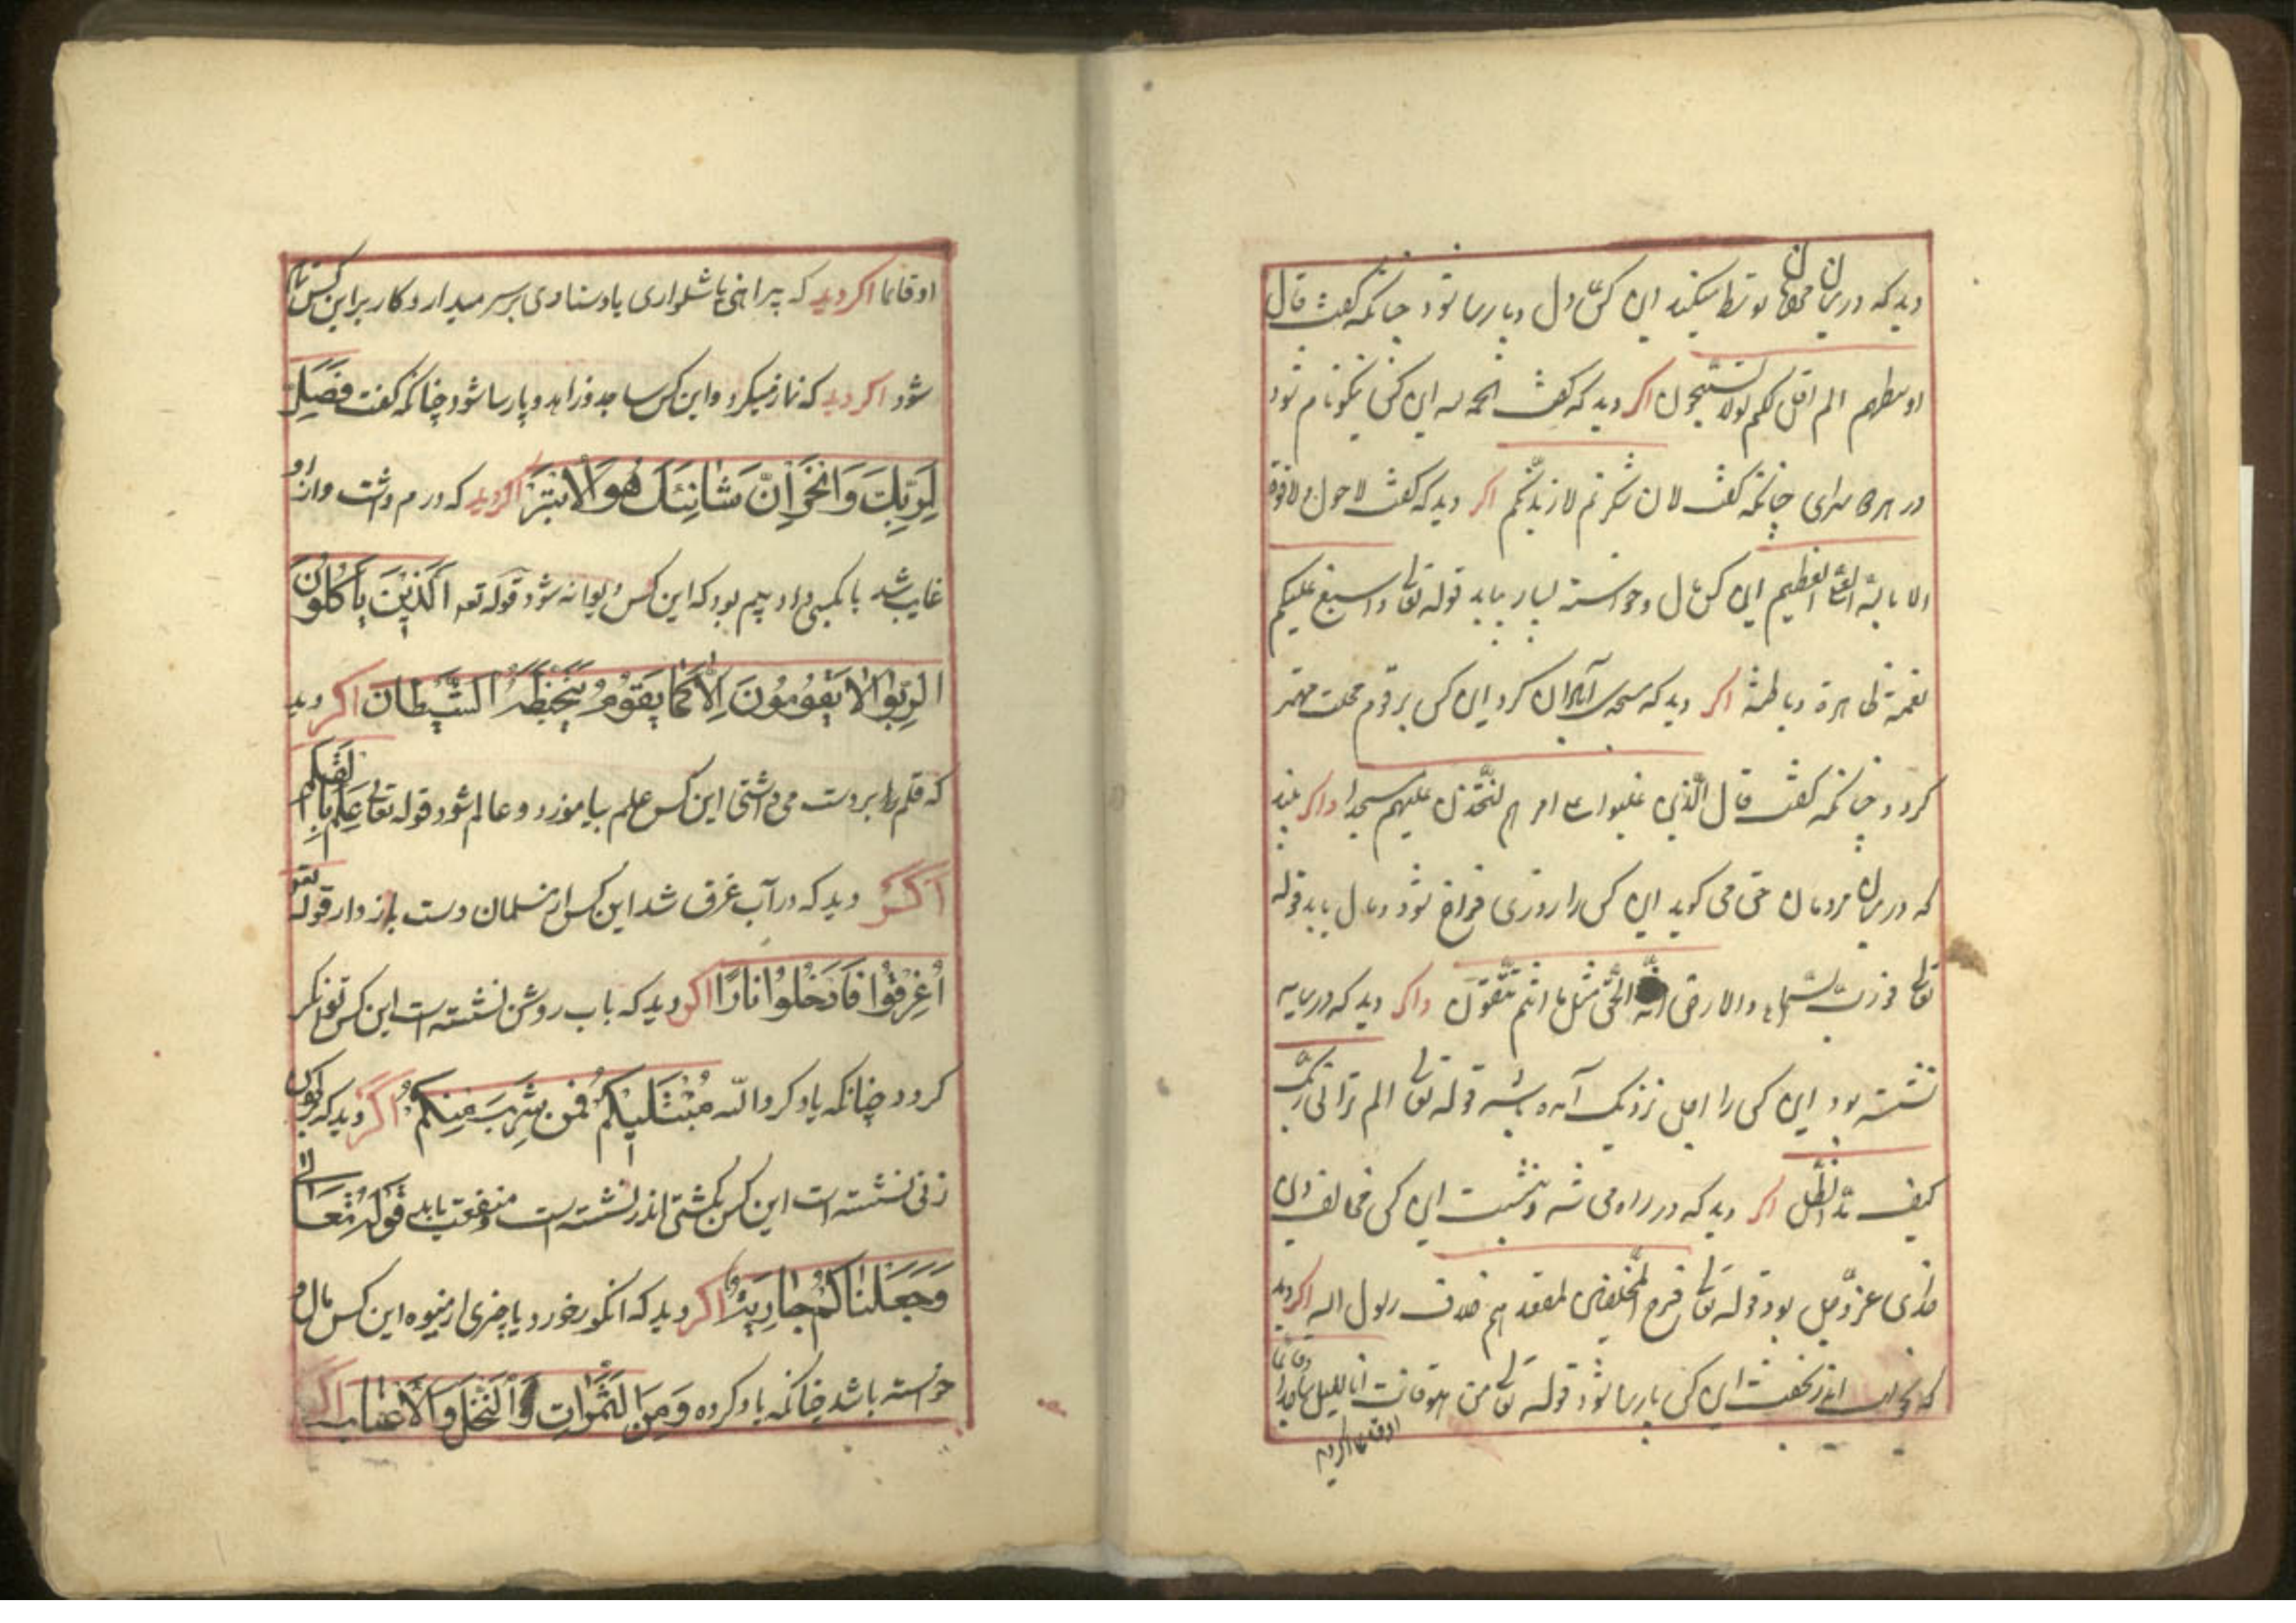 دید که در میان توسط میکند این کس دل و پارسا شود چنانکه گفت قال
اوسطهم الم اقل لکم لولا تسبحون اکر دید که گفت الحمد لله این کس نیکونام شود
در هر دو سرای چنانکه گفت لان شکرتم لازیدنکم اکر دید که گفت لا حول ولا قوة
الا بالله العلی العظیم این کس مال و خواسته بسیار بیابد قوله تعالی واسبغ علیکم
نعمة ظاهرة وباطنة اکر دید که مسجدی آبادان کرد این کس بر قوم محلت مهتر
کردد چنانکه گفت قال الذین غلبوا علی امرهم لنتخذن علیهم مسجدا واکر بیند
که در میان مردمان حق می کوید این کس را روزی فراخ شود ومال یابد قوله
تعالی فورب السماء والارض انه لحق مثل ما انتم تنطقون واکر دید که در سایه
نشسته بود این کس را اجل نزدیک آمده باشد قوله تعالی الم تر الی ربک
کیف مد الظل اکر دید که در راه می شد وبنشست این کس مخالف دین
خدای عز وجل بود قوله تعالی فرح المخلفون بمقعدهم خلاف رسول الله اکر دید
که بخواب اندر بخفت این کس پارسا شود قوله تعالی من هو قانت انا اللیل ساجدا وقائما
اوقائما اکر دید
اوقائما اکر دید که پیراهنی یا شلواری یا دستاری بر سر میدارد کار بر این کس تمام
شود اکر دید که نماز میکرد واین کس ساجد وزاهد وپارسا شود چنانکه گفت فصل
لربک وانحر ان شانئک هو الابتر اکر دید که درم داشت و از او
غایب شد یا بکسی داد بیم بود که این کس دیوانه شود قوله تعه الذین یأکلون
الربوا لا یقومون الا کما یقوم یتخبطه الشیطان اکر دید
که قلم را بر دست می داشتی این کس علم بیاموزد و عالم شود قوله تعالی علم بالقلم
اکر دید که در آب غرق شد این کس از مسلمان دست باز دارد قوله تعو
اغرقوا فادخلوا نارا اکر دید که باب روشن نشسته است این کس توانکر
کردد چنانکه یاد کرد الله مبتلیکم فمن شرب منکم اکر دید که اکنون
زنی نشسته است این کس بکشتی اندر نشسته است ومنفعت یابد قوله تعالی
وجعلناکم جاریة اکر دید که انکور خورد یا چیزی از میوه این کس مال و
خواسته باشد چنانکه یاد کرده ومن الثمرات والنخل والاعناب اکر